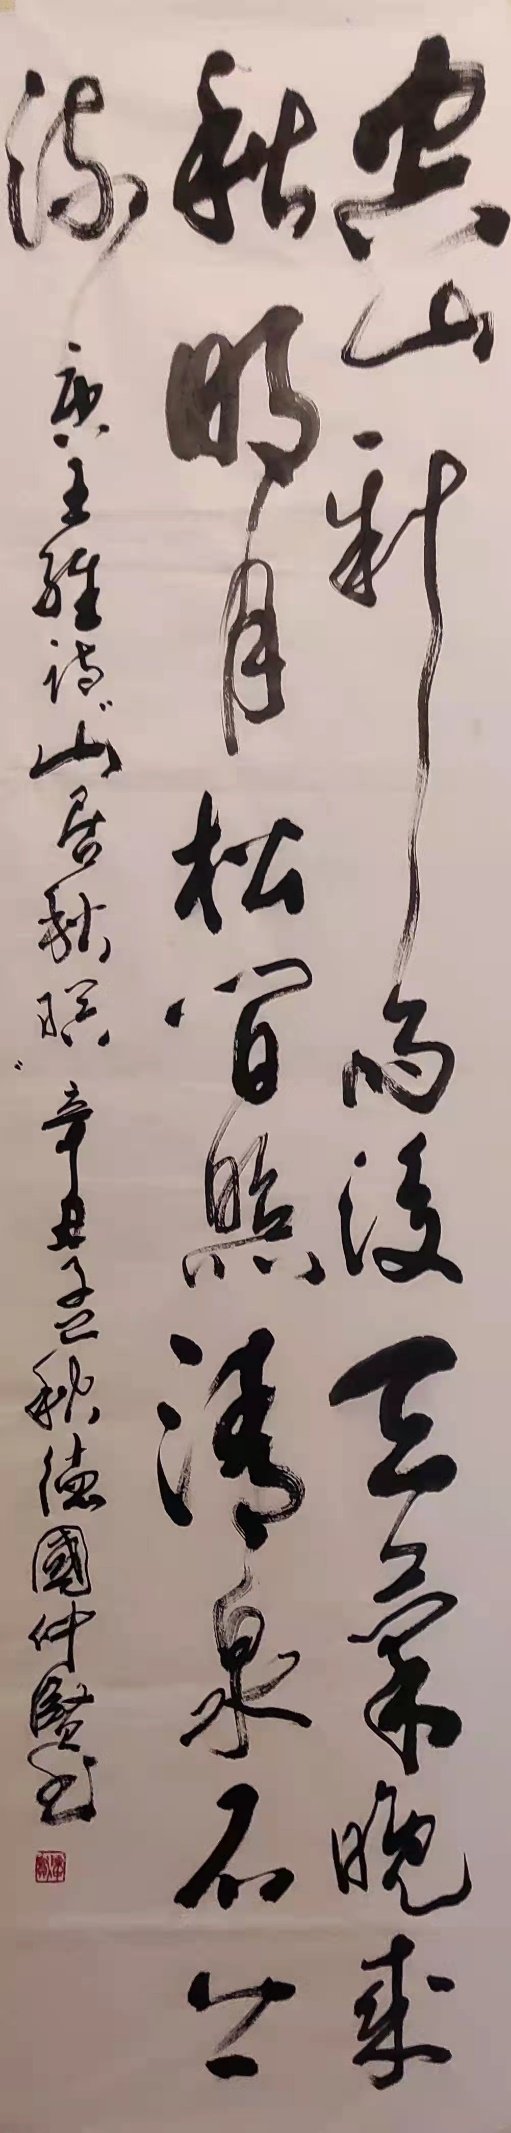 空山新雨後天氣晚來
秋明月松間照清泉石上
流
唐王維詩"山居秋暝"辛丑孟秋德國仲賢書